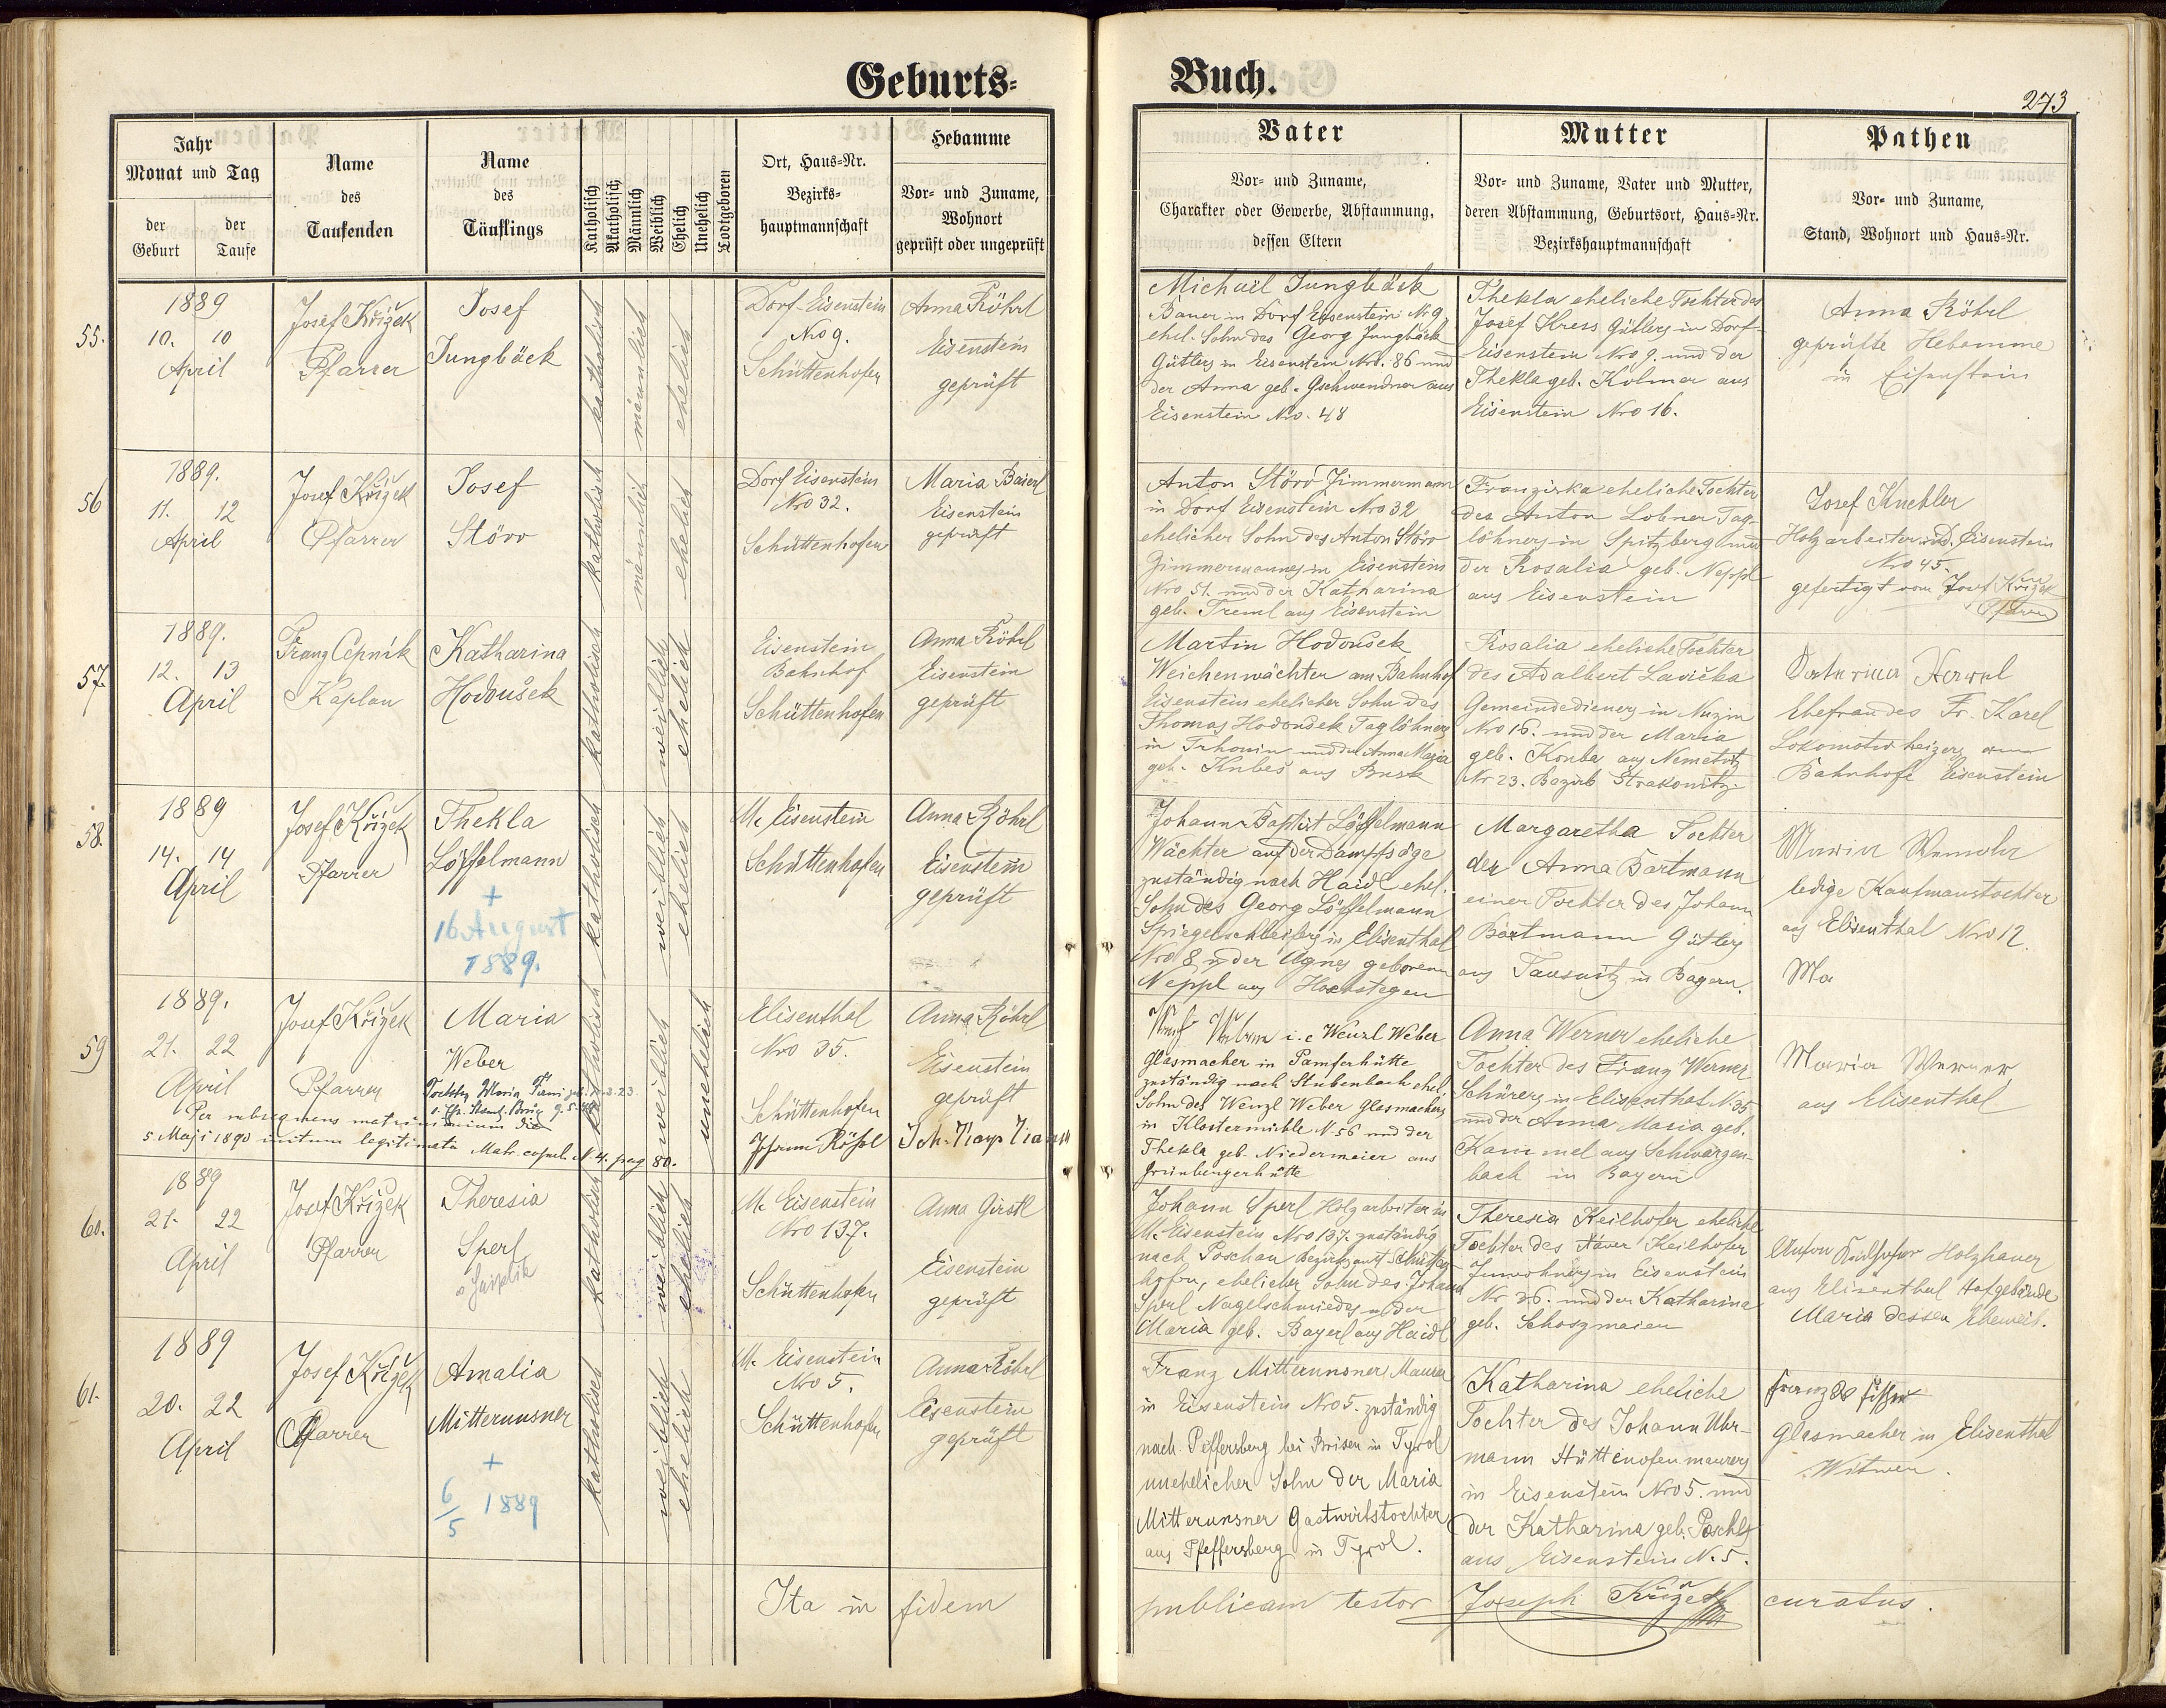 Geburts-
Buch.
273
Jahr
Monat und Tag
der Geburt
der Taufe
Name
des
Taufenden
Name
des
Täuflings
Katholisch
Akatholisch
Männlich
Weiblich
Ehelich
Unehelich
Todtgeboren
Ort, Haus-Nr.
Bezirks-
hauptmannschaft
Hebamme
Vor- und Zuname,
Wohnort
geprüft oder ungeprüft
Vater
Vor- und Zuname,
Charakter oder Gewerbe, Abstammung,
dessen Eltern
Mutter
Vor- und Zuname, Vater und Mutter,
deren Abstammung, Geburtsort, Haus-Nr.
Bezirkshauptmannschaft
Pathen
Vor- und Zuname,
Stand, Wohnort und Haus-Nr.
55.
1889
10. 10
April
Josef Křižek
Pfarrer
Josef
Jungbäck
katholisch
männlich
ehelich
Dorf Eisenstein
Nro 9.
Schüttenhofen
Anna Röhrl
Eisenstein
geprüft
Michael Jungbäck
Bauer in Dorf Eisenstein Nr 9,
ehel. Sohn des Georg Jungbäck
Gütlers in Eisenstein Nro. 86 und
der Anna geb. Gschwendner aus
Eisenstein Nro. 48
Thekla eheliche Tochter des
Josef Kress Gütlers in Dorf-
Eisenstein Nro 9. und der
Thekla geb. Kolmer aus
Eisenstein Nro 16.
Anna Röhrl
geprüfte Hebamme
in Eisenstein
56
1889.
11. 12
April
Josef Křižek
Pfarrer
Josef
Störr
katholisch
männlich
ehelich
Dorf Eisenstein
Nro 32.
Schüttenhofen
Maria Baierl
Eisenstein
geprüft
Anton Störr Zimmermann
in Dorf Eisenstein Nro 32
ehelicher Sohn des Anton Störr
Zimmermannes in Eisenstein
Nro 51. und der Katharina
geb. Treml aus Eisenstein
Franziska eheliche Tochter
des Anton Lobner Tag-
löhners in Spitzberg und
der Rosalia geb. Neppl
aus Eisenstein
Josef Kuchler
Holzarbeiter in D. Eisenstein
Nro 45.
gefertigt von Josef Křižek
Pfarrer
57.
1889.
12. 13
April
Franz Cepnik
Kaplan
Katharina
Hodoušek
katholisch
weiblich
ehelich
Eisenstein
Bahnhof
Schüttenhofen
Anna Röhrl
Eisenstein
geprüft
Martin Hodoušek
Weichenwächter am Bahnhof
Eisenstein ehelicher Sohn des
Thomas Hodoušek Taglöhners
in und der Anna Maria
geb. Kubeš aus
Rosalia eheliche Tochter
des Adalbert Lavička
Gemeindedieners in
Nro 16. und der Maria
geb. aus Nemetitz
Nr 23. Bezirk Strakonitz
Ehefrau des Fr. Karel
Lokomotivheizers am
Bahnhofe Eisenstein
58.
1889
14. 14
April
Josef Křižek
Pfarrer
Thekla
Löffelmann
+
16 August
1889.
katholisch
weiblich
ehelich
M. Eisenstein
Schüttenhofen
Anna Röhrl
Eisenstein
geprüft
Johann Baptist Löffelmann
Wächter auf der Dampfsäge
zuständig nach Haidl ehel.
Sohn des Georg Löffelmann
Spiegelschleifers in Elisenthal
Nro 8 u der Agnes geborenen
Neppl aus
Margaretha Tochter
der Anna Bartmann
einer Tochter des Johann
Bartmann Gütlers
aus in Bayern.
Maria
ledige Kaufmanstochter
aus Elisenthal Nro 12.
Ma
59
1889.
21. 22
April
Josef Křižek
Pfarrer
Maria
Weber
Per subsequens matrimonium die
5. Maji 1890 initum legitimata Matr. copul. N. 4. pag 80.
katholisch
weiblich
unehelich
Elisenthal
Nro 35.
Schüttenhofen
Anna Röhrl
Eisenstein
geprüft
i. e Wenzl Weber
Glasmacher in Pamferhütte
zuständig nach Stubenbach ehel.
Sohn des Wenzl Weber Glasmachers
in Klostermühle N. 56 und der
Thekla geb. Niedermeier aus
Grünbergerhütte
Anna Werner eheliche
Tochter des Franz Werner
Schürers in Elisenthal N. 35
und der Anna Maria geb.
Kammel aus Schwarzen-
bach in Bayern
Maria Werner
aus Elisenthal
60.
1889
21. 22
April
Josef Křižek
Pfarrer
Theresia
Sperl
katholisch
weiblich
ehelich
M. Eisenstein
Nro 137.
Schüttenhofen
Anna Girstl
Eisenstein
geprüft
Johann Sperl Holzarbeiter in
M. Eisenstein Nro 137. zuständig
nach Poschau Bezirksamt Schütten-
hofen, ehelicher Sohn des Johann
Sperl Nagelschmiedes u der
Maria geb. Bayerl aus Haidl
Theresia Keilhofer eheliche
Tochter des Xaver Keilhofer
Inwohners in Eisenstein
Nr 26. und der Katharina
geb.
Anton Keilhofer Holzhauer
aus Elisenthal Hofgebäude
Maria dessen Eheweib.
61.
1889
20. 22
April
Josef Křižek
Pfarrer
Amalia
Mitterunsner
+
6/5 1889
katholisch
weiblich
ehelich
M. Eisenstein
Nro 5.
Schüttenhofen
Anna Röhrl
Eisenstein
geprüft
Franz Mitterunsner Maurer
in Eisenstein Nro 5. zuständig
nach Peffersberg bei Brixen in Tyrol
unehelicher Sohn der Maria
Mitterunsner Gastwirtstochter
aus Pfeffersberg in Tyrol.
Katharina eheliche
Tochter des Johann Uhr-
mann Hüttenofenmaurers
in Eisenstein Nro 5. und
der Katharina geb. Paschl
aus Eisenstein N. 5.
Glasmacher in Elisenthal
Witwer.
Ita in fidem publicam testor Joseph Křižek curatus.